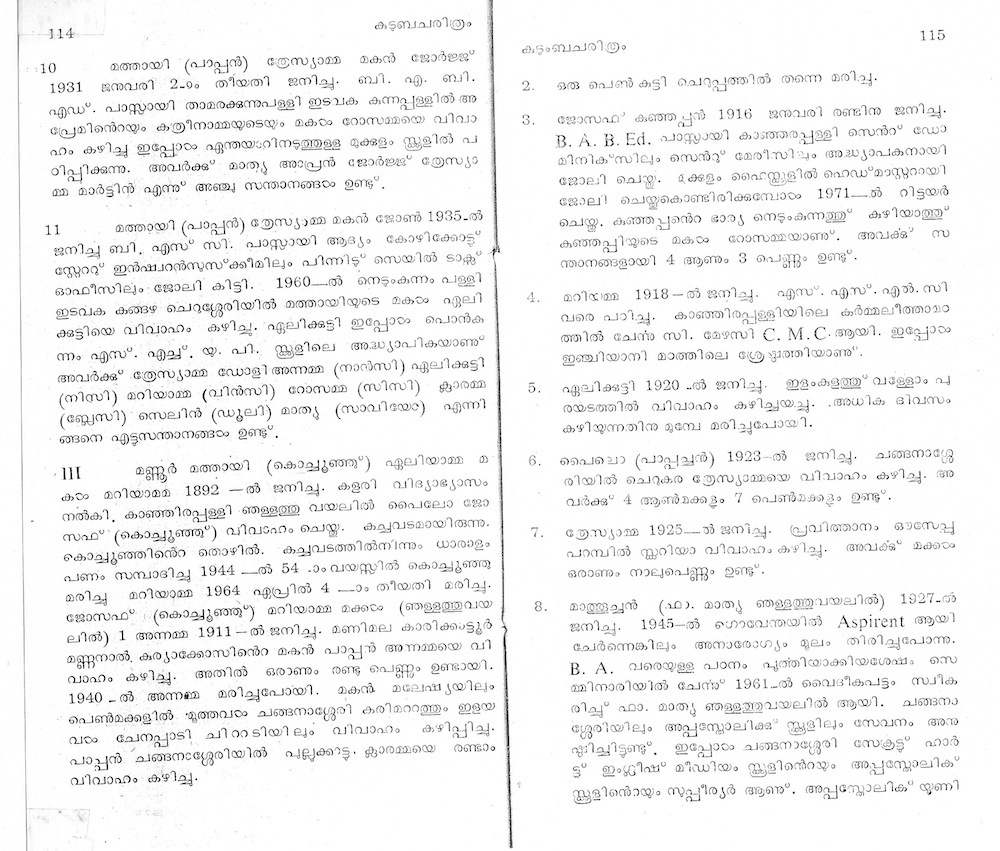 114
കുടുബചരിത്രം
10 മത്തായി (പാപ്പൻ) ത്രേസ്യാമ്മ മകൻ ജോർജ്ജ്
1931 ജനുവരി 2-ാം തീയതി ജനിച്ചു. ബി. എ. ബി.
എഡ്. പാസ്സായി താമരക്കുന്നുപള്ളി ഇടവക കുന്നപ്പള്ളിൽ അ
പ്രേമിൻെറയും കത്രീനാമ്മയുടെയും മകൾ റോസമ്മയെ വിവാ
ഹം കഴിച്ചു ഇപ്പോൾ ഏന്തയാറിനടുത്തുള്ള മുക്കുളം സ്കൂളിൽ പ
ഠിപ്പിക്കുന്നു. അവർക്കു് മാത്യു അപ്രേൻ ജോർജ്ജ് ത്രേസ്യാ
മ്മ മാർട്ടിൻ എന്നു് അഞ്ചു സന്താനങ്ങൾ ഉണ്ട്.
11 മത്തായി (പാപ്പൻ) ത്രേസ്യാമ്മ മകൻ ജോൺ 1935-ൽ
ജനിച്ച ബി. എസ് സി. പാസ്സായി ആദ്യം കോഴിക്കോട്ടു്
സ്റ്റേററു് ഇൻഷ്വറൻസുസ്ക്കീമിലും പിന്നിടു് സെയിൽ ടാക്സു്
ഓഫീസിലും ജോലി കിട്ടി. 1960—ൽ നെടുംകുന്നം പള്ളി
ഇടവക കങ്ങഴ ചെറുശ്ശേരിയിൽ മത്തായിയുടെ മകൾ ഏലി
ക്കുട്ടിയെ വിവാഹം കഴിച്ചു. ഏലിക്കുട്ടി ഇപ്പോൾ പൊൻകു
ന്നം എസ്. എച്ച്. യു. പി. സ്കൂളിലെ അദ്ധ്യാപികയാണു്
അവർക്കു് ത്രേസ്യാമ്മ ഡോളി അന്നമ്മ (നാൻസി) ഏലിക്കുട്ടി
(നിസി) മറിയാമ്മ (വിൻസി) റോസമ്മ (സിസി) ക്ലാരമ്മ
(ബ്ലേസി) സെലിൻ (ഡൂലി) മാത്യു (സാവിയോ) എന്നി
ങ്ങനെ എട്ടുസന്താനങ്ങൾ ഉണ്ടു്.
III മണ്ണൂർ മത്തായി (കൊച്ചൂഞ്ഞു്) ഏലിയാമ്മ മ
കൾ മറിയാമമ 1892 —ൽ ജനിച്ചു. കളരി വിദ്യാഭ്യാസം
നൽകി. കാഞ്ഞിരപ്പള്ളി ഞള്ളത്തു വയലിൽ പൈലോ ജോ
സഫ് (കൊച്ചൂഞ്ഞു്) വിവാഹം ചെയ്തു. കച്ചവടമായിരുന്നു.
കൊച്ചൂഞ്ഞിൻെറ തൊഴിൽ. കച്ചവടത്തിൽനിന്നും ധാരാളം
പണം സമ്പാദിച്ചു 1944 —ൽ 54 -ാം വയസ്സിൽ കൊച്ചൂഞ്ഞു
മരിച്ചു മറിയാമ്മ 1964 ഏപ്രിൽ 4 —ാം തീയതി മരിച്ചു.
ജോസഫ് (കൊച്ചൂഞ്ഞു്) മറിയാമ്മ മക്കൾ (ഞള്ളത്തുവയ
ലിൽ) 1 അന്നമ്മ 1911—ൽ ജനിച്ചു. മണിമല കാരിക്കാട്ടൂർ
മണ്ണനാൽ കുര്യാക്കോസിൻെറ മകൻ പാപ്പൻ അന്നമ്മയെ വി
വാഹം കഴിച്ചു. അതിൽ ഒരാണും രണ്ടു പെണ്ണും ഉണ്ടായി.
1940 -ൽ അന്നമ്മ മരിച്ചുപോയി. മകൻ മലേഷ്യയിലും
പെൺമക്കളിൽ മൂത്തവൾ ചങ്ങനാശ്ശേരി കരിമററത്തും ഇളയ
വൾ ചേനപ്പാടി ചിററടിയിലും വിവാഹം കഴിപ്പിച്ചു.
പാപ്പൻ ചങ്ങനാശ്ശേരിയിൽ പുല്ലുക്കാട്ടു ക്ലാരമ്മയെ രണ്ടാം
വിവാഹം കഴിച്ചു.
115
കുടുംബചരിത്രം
2. ഒരു പെൺ കുട്ടി ചെറുപ്പത്തിൽ തന്നെ മരിച്ചു.
3. ജോസഫ് കുഞ്ഞപ്പൻ 1916 ജനുവരി രണ്ടിനു ജനിച്ചു.
B. A. B. Ed. പാസ്സായി കാഞ്ഞരപ്പള്ളി സെൻറ് ഡോ
മിനിക്സിലും സെൻറു് മേരീസിലും അദ്ധ്യാപകനായി
ജോലി ചെയ്തു. മുക്കുളം ഹൈസ്കൂളിൽ ഹെഡ്മാസ്റ്ററായി
ജോലി ചെയ്തുകൊണ്ടിരിക്കുമ്പോൾ 1971—ൽ റിട്ടയർ
ചെയ്തു. കുഞ്ഞപ്പൻെറ ഭാര്യ നെടുംകുന്നത്തു് കുഴിയാത്തു്
കുഞ്ഞപ്പിയുടെ മകൾ റോസമ്മയാണു്. അവർക്കു് സ
ന്താനങ്ങളായി 4 ആണും 3 പെണ്ണും ഉണ്ടു്.
4. മറിയമ്മ 1918—ൽ ജനിച്ചു. എസ്. എസ്. എൽ. സി
വരെ പഠിച്ചു. കാഞ്ഞിരപ്പള്ളിയിലെ കർമ്മലീത്താമഠ
ത്തിൽ ചേർന്നു സി. മേഴസി C. M. C. ആയി. ഇപ്പോൾ
ഇഞ്ചിയാനി മഠത്തിലെ ശ്രേഷ്ഠത്തിയാണു്.
5. ഏലിക്കുട്ടി 1920 -ൽ ജനിച്ചു. ഇളംകുളത്തു് വള്ളോം പു
രയടത്തിൽ വിവാഹം കഴിച്ചയച്ചു. അധിക ദിവസം
കഴിയുന്നതിനു മുമ്പേ മരിച്ചുപോയി.
6. പൈലൊ (പാപ്പച്ചൻ) 1923-ൽ ജനിച്ചു. ചങ്ങനാശ്ശേ
രിയിൽ ചെറുകര ത്രേസ്യാമ്മയെ വിവാഹം കഴിച്ചു. അ
വർക്കു് 4 ആൺമക്കളും 7 പെൺമക്കളും ഉണ്ടു്.
7. ത്രേസ്യാമ്മ 1925—ൽ ജനിച്ചു. പ്രവിത്താനം ഔസേപ്പു
പറമ്പിൽ സ്കറിയാ വിവാഹം കഴിച്ചു. അവർക്കു് മക്കൾ
ഒരാണും നാലുപെണ്ണും ഉണ്ടു്.
8. മാത്തൂച്ചൻ (ഫാ. മാത്യു ഞള്ളത്തുവയലിൽ) 1927-ൽ
ജനിച്ചു. 1945-ൽ ഗൊവേന്തയിൽ Aspirent ആയി
ചേർന്നെങ്കിലും അനാരോഗ്യം മൂലം തിരിച്ചുപോന്നു.
B. A. വരെയുള്ള പഠനം പൂർത്തിയാക്കിയശേഷം സെ
മ്മിനാരിയിൽ ചേർന്നു് 1961-ൽ വൈദീകപട്ടം സ്വീക
രിച്ചു് ഫാ. മാത്യു ഞള്ളത്തുവയലിൽ ആയി. ചങ്ങനാ
ശ്ശേരിയിലും അപ്പസ്തോലിക്കു് സ്കൂളിലും സേവനം അനു
ഷ്ഠിച്ചിട്ടുണ്ടു്. ഇപ്പോൾ ചങ്ങനാശ്ശേരി സേക്രട്ടു് ഹാർ
ട്ടു് ഇംഗ്ലീഷ് മീഡിയം സ്കൂളിൻെറയും അപ്പസ്തോലിക്
സ്കൂളിൻെറയും സുപ്പീര്യർ ആണു്. അപ്പസ്തോലിക് യൂണി